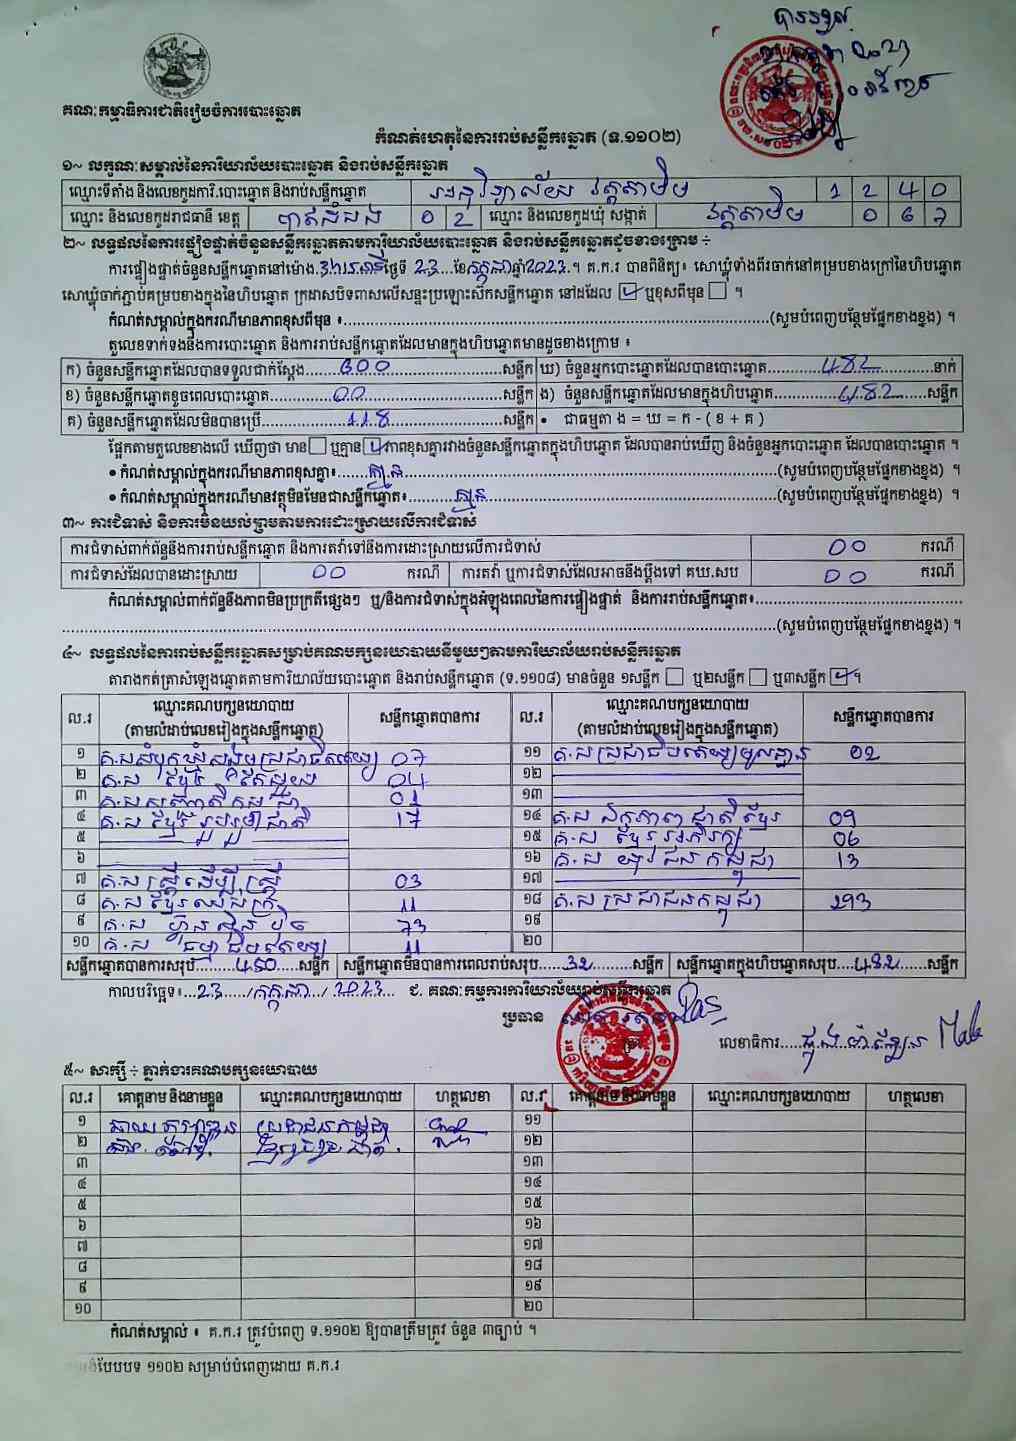 គណៈកម្មាធិការជាតិរៀបចំការបោះឆ្នោត
កំណត់ហេតុនៃការរាប់សន្លឹកឆ្នោត (ទ.១១០២)
១~ លក្ខណៈសម្គាល់នៃការិយាល័យបោះឆ្នោត និងរាប់សន្លឹកឆ្នោត
ឈ្មោះទីតាំង និងលេខកូដការិ.បោះឆ្នោត និងរាប់សន្លឹកឆ្នោត អនុវិទ្យាល័យ វត្តតាមិម 1 2 4 0
ឈ្មោះ និងលេខកូដរាជធានី ខេត្ត បាត់ដំបង 0 2 ឈ្មោះ និងលេខកូដឃុំ សង្កាត់ វត្តតាមិម 0 6 7
២~ លទ្ធផលនៃការផ្ទៀងផ្ទាត់ចំនួនសន្លឹកឆ្នោតតាមការិយាល័យបោះឆ្នោត និងរាប់សន្លឹកឆ្នោតដូចខាងក្រោម ÷
ការផ្ទៀងផ្ទាត់ចំនួនសន្លឹកឆ្នោតនៅម៉ោង ថ្ងៃទី 23 ខែ កក្កដា ឆ្នាំ 2023 ។ គ.ក.រ បានពិនិត្យ៖ សោឃ្លុំទាំងពីរចាក់នៅគម្របខាងក្រៅនៃហិបឆ្នោត
សោឃ្លុំចាក់ភ្ជាប់គម្របខាងក្នុងនៃហិបឆ្នោត ក្រដាសបិទពាសលើសន្ទះប្រឡោះស៊កសន្លឹកឆ្នោត នៅដដែល ឬខុសពីមុន ។
កំណត់សម្គាល់ក្នុងករណីមានភាពខុសពីមុន ៖ (សូមបំពេញបន្ថែមផ្នែកខាងខ្នង) ។
តួលេខទាក់ទងនឹងការបោះឆ្នោត និងការរាប់សន្លឹកឆ្នោតដែលមានក្នុងហិបឆ្នោតមានដូចខាងក្រោម ៖
ក) ចំនួនសន្លឹកឆ្នោតដែលបានទទួលជាក់ស្តែង 600 សន្លឹក ឃ) ចំនួនអ្នកបោះឆ្នោតដែលបានបោះឆ្នោត 482 នាក់
ខ) ចំនួនសន្លឹកឆ្នោតខូចពេលបោះឆ្នោត 00 សន្លឹក ង) ចំនួនសន្លឹកឆ្នោតដែលមានក្នុងហិបឆ្នោត 482 សន្លឹក
គ) ចំនួនសន្លឹកឆ្នោតដែលមិនបានប្រើ 118 សន្លឹក • ជាធម្មតា ង = ឃ = ក - ( ខ + គ )
ផ្អែកតាមតួលេខខាងលើ ឃើញថា មាន ឬគ្មាន ភាពខុសគ្នារវាងចំនួនសន្លឹកឆ្នោតក្នុងហិបឆ្នោត ដែលបានរាប់ឃើញ និងចំនួនអ្នកបោះឆ្នោត ដែលបានបោះឆ្នោត ។
• កំណត់សម្គាល់ក្នុងករណីមានភាពខុសគ្នា៖ គ្មាន (សូមបំពេញបន្ថែមផ្នែកខាងខ្នង) ។
• កំណត់សម្គាល់ក្នុងករណីមានវត្ថុមិនមែនជាសន្លឹកឆ្នោត៖ គ្មាន (សូមបំពេញបន្ថែមផ្នែកខាងខ្នង) ។
៣~ ការជំទាស់ និងការមិនយល់ព្រមតាមការដោះស្រាយលើការជំទាស់
ការជំទាស់ពាក់ព័ន្ធនឹងការរាប់សន្លឹកឆ្នោត និងការតវ៉ាទៅនឹងការដោះស្រាយលើការជំទាស់ 00 ករណី
ការជំទាស់ដែលបានដោះស្រាយ 00 ករណី ការតវ៉ា ឬការជំទាស់ដែលអាចនឹងប្តឹងទៅ គឃ.សប 00 ករណី
កំណត់សម្គាល់ពាក់ព័ន្ធនឹងភាពមិនប្រក្រតីផ្សេងៗ ឬ/និងការជំទាស់ក្នុងអំឡុងពេលនៃការផ្ទៀងផ្ទាត់ និងការរាប់សន្លឹកឆ្នោត៖
(សូមបំពេញបន្ថែមផ្នែកខាងខ្នង) ។
៤~ លទ្ធផលនៃការរាប់សន្លឹកឆ្នោតសម្រាប់គណបក្សនយោបាយនីមួយៗតាមការិយាល័យរាប់សន្លឹកឆ្នោត
តារាងកត់ត្រាសំឡេងឆ្នោតតាមការិយាល័យបោះឆ្នោត និងរាប់សន្លឹកឆ្នោត (ទ.១១០៨) មានចំនួន ១សន្លឹក ឬ២សន្លឹក ឬ៣សន្លឹក ។
ល.រ ឈ្មោះគណបក្សនយោបាយ (តាមលំដាប់លេខរៀងក្នុងសន្លឹកឆ្នោត) សន្លឹកឆ្នោតបានការ ល.រ ឈ្មោះគណបក្សនយោបាយ (តាមលំដាប់លេខរៀងក្នុងសន្លឹកឆ្នោត) សន្លឹកឆ្នោតបានការ
១ គ.ប សំបុកឃ្មុំសង្គមប្រជាធិបតេយ្យ 07 ១១ គ.ប ប្រជាធិបតេយ្យមូលដ្ឋាន 02
២ គ.ប ខ្មែរ តែមួយ 04 ១២
៣ គ.ប សញ្ជាតិកម្ពុជា 01 ១៣
៤ គ.ប ខ្មែររួបរួមជាតិ 17 ១៤ គ.ប ឯកភាពជាតិខ្មែរ 09
៥ ១៥ គ.ប ខ្មែរអភិរក្ស 06
៦ ១៦ គ.ប យុវជនកម្ពុជា 13
៧ គ.ប ស្រ្តីដើម្បីស្រ្តី 03 ១៧
៨ គ.ប ខ្មែរឈប់ក្រ 11 ១៨ គ.ប ប្រជាជនកម្ពុជា 293
៩ គ.ប ហ៊្វុនស៊ិនប៉ិច 73 ១៩
១០ គ.ប ធម្មាធិបតេយ្យ 11 ២០
សន្លឹកឆ្នោតបានការសរុប 450 សន្លឹក សន្លឹកឆ្នោតមិនបានការពេលរាប់សរុប 32 សន្លឹក សន្លឹកឆ្នោតក្នុងហិបឆ្នោតសរុប 482 សន្លឹក
កាលបរិច្ឆេទ៖ 23 / កក្កដា / 2023 ជ. គណៈកម្មការការិយាល័យរាប់សន្លឹកឆ្នោត
ប្រធាន លេខាធិការ
៥~ សាក្សី ÷ ភ្នាក់ងារគណបក្សនយោបាយ
ល.រ គោត្តនាម និងនាមខ្លួន ឈ្មោះគណបក្សនយោបាយ ហត្ថលេខា ល.រ គោត្តនាម និងនាមខ្លួន ឈ្មោះគណបក្សនយោបាយ ហត្ថលេខា
១ ប្រជាជនកម្ពុជា ១១
២ ខ្មែររួបរួមជាតិ ១២
៣ ១៣
៤ ១៤
៥ ១៥
៦ ១៦
៧ ១៧
៨ ១៨
៩ ១៩
១០ ២០
កំណត់សម្គាល់ ៖ គ.ក.រ ត្រូវបំពេញ ទ.១១០២ ឱ្យបានត្រឹមត្រូវ ចំនួន ៣ច្បាប់ ។
បែបបទ ១១០២ សម្រាប់បំពេញដោយ គ.ក.រ